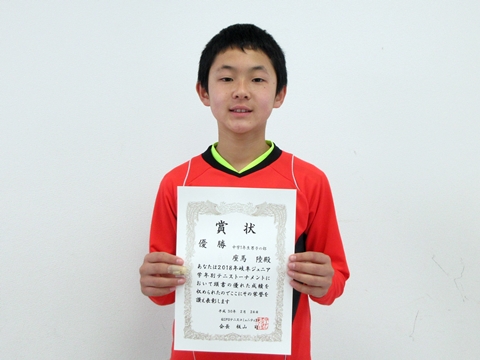 賞状
優勝 中学1年生男子の部
座馬 陸殿
あなたは2018年岐阜ジュニア
学年別テニストーナメントに
おいて頭書の優れた成績を
収められたのでここにその栄誉を
讃え表彰します
平成30年 3月 30日
会長